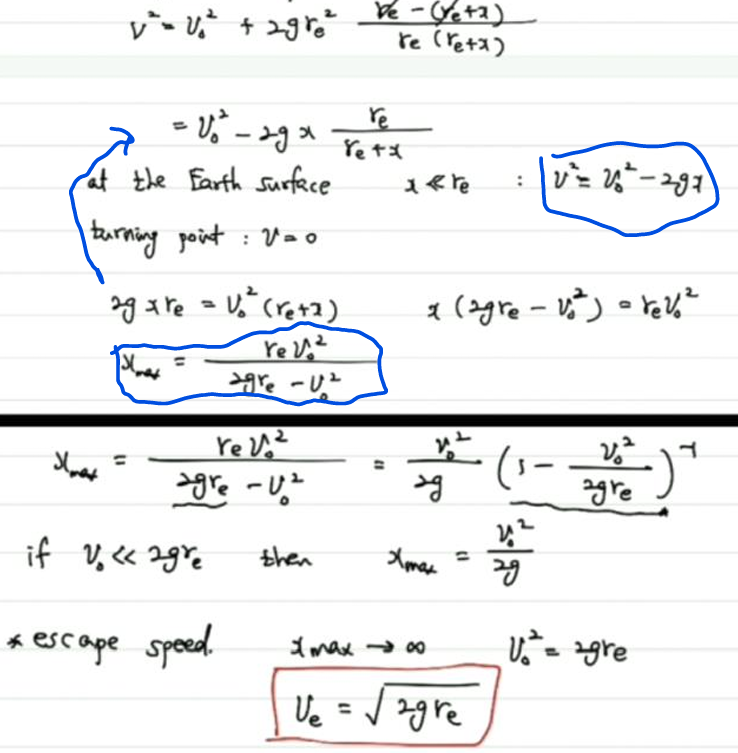 v² = v₀² + 2grₑ² (rₑ - (rₑ+x)) / (rₑ(rₑ+x))
= v₀² - 2gx rₑ / (rₑ+x)
at the Earth surface x ≪ rₑ : v² = v₀² - 2gx
turning point : v = 0
2gxrₑ = v₀²(rₑ+x) x(2grₑ - v₀²) = rₑv₀²
x_max = rₑv₀² / (2grₑ - v₀²)
x_max = rₑv₀² / (2grₑ - v₀²) = v₀²/2g (1 - v₀²/2grₑ)⁻¹
if v₀ ≪ 2grₑ then x_max = v₀²/2g
* escape speed. x max → ∞ v₀² = 2grₑ
vₑ = √(2grₑ)